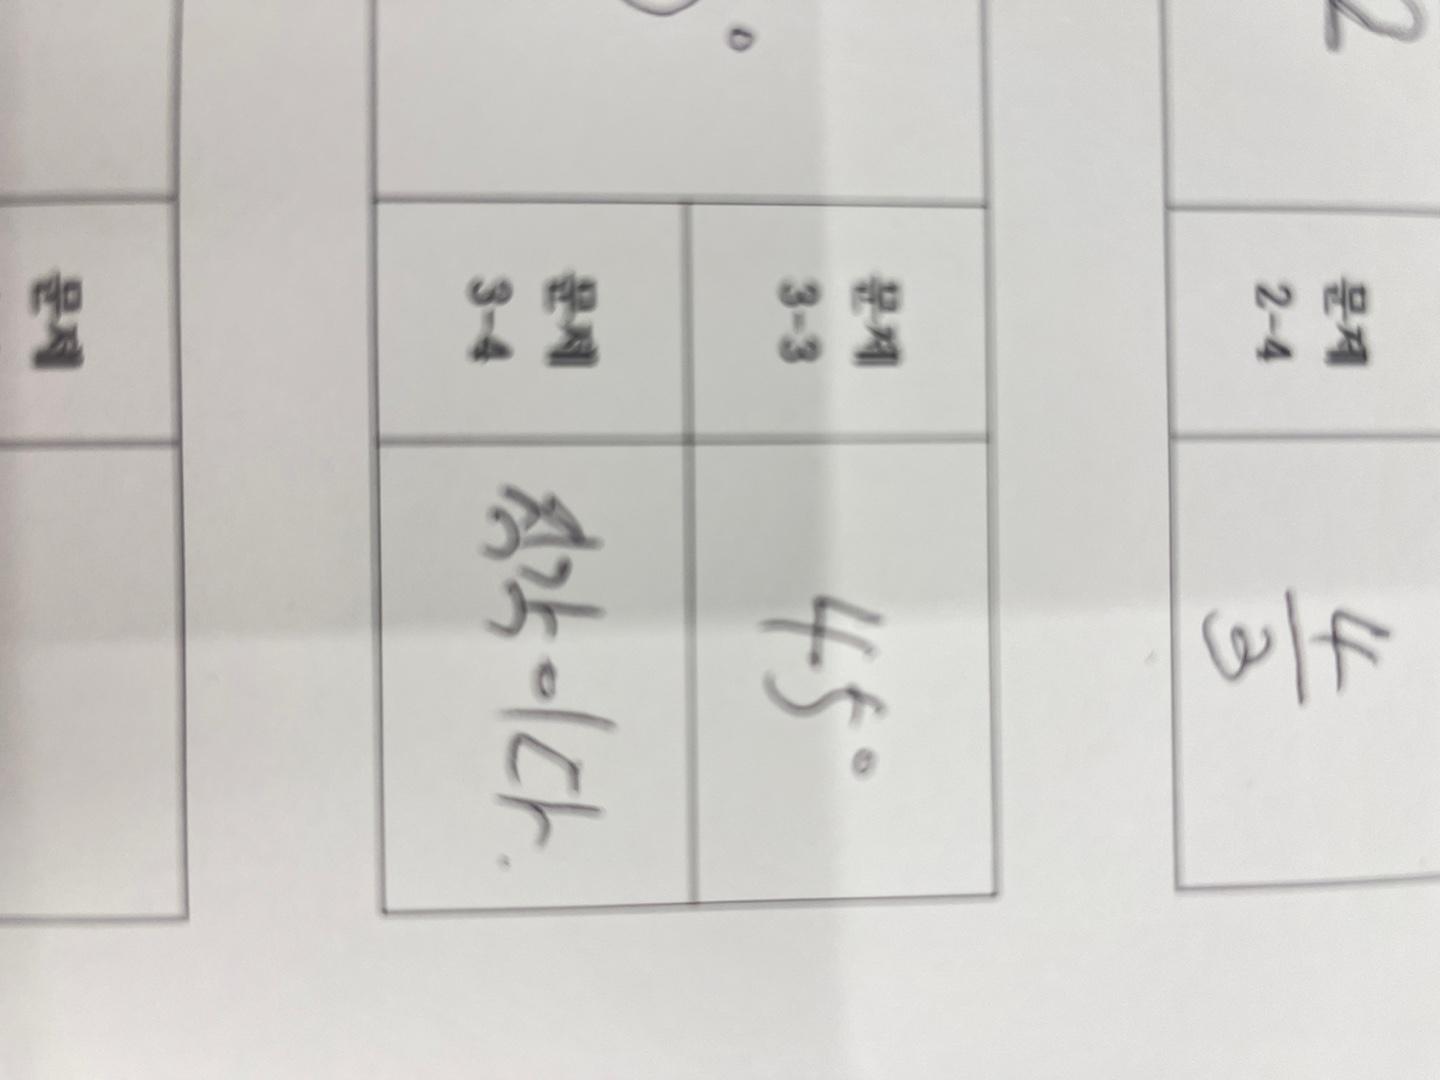 2
문제
2-4
4
3
°
문제
3-3
45°
문제
3-4
청각이다.
문제